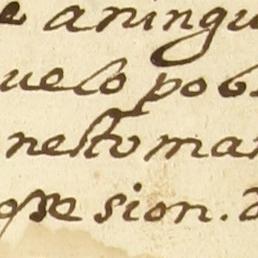 e aningu
uelo pob
nesto man
qse sion. d